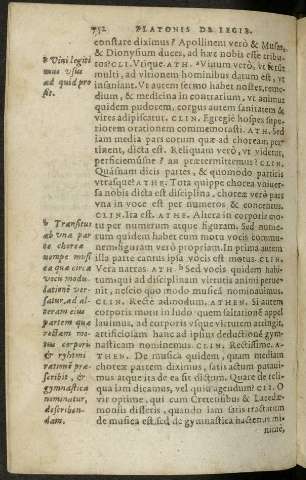 752 PLATONIS DE LEGIB.
constare diximus? Apollinem verò & Musas,
& Dionysium duces, ad hæc nobis esse tribu-
tos? CLI. Vtique. ATH. Vinum verò, vt
multi, ad vltionem hominibus datum est, vt
insaniant. Vt autem sermo habet noster, reme-
dium, & medicina in contrarium, vt animus
quidem pudorem, corpus autem sanitatem &
vires adipiscatur. CLIN. Egregiè hospes supe-
riorem orationem commemorasti. ATH. Sed
iam media pars eorum quæ ad choream per-
tinent, dicta est. Reliquam verò, vt videtur,
perficiemúsne? an prætermittemus? CLIN.
Quásnam dicis partes, & quomodo partiris
vtrasque? ATHE. Tota quippe chorea vniuer-
sa nobis dicta est disciplina, chorex verò pars
vna in voce est per numeros & concentus.
CLIN. Ita est. ATHE. Altera in corporis mo-
tu per numerum atque figuram. Sed nume-
rum quidem habet cum motu vocis commu-
nem: figuram verò propriam. In prima autem
illa parte cantus ipsa vocis est motus. CLIN.
Vera narras. ATH. Sed vocis quidem habi-
tum, qui ad disciplinam virtutis animi perue-
nit, nescio quo modo musicā nominauimus.
CLIN. Rectè admodum. ATHEN. Si autem
corporis motū in ludo quem saltationē appel
lauimus, ad corporis vsque virtutem attingit,
artificiosam hanc ad ipsius deductionē gym-
nasticam nominemus. CLIN. Rectissimè. A-
THEN. De musica quidem, quam mediam
choreæ partem diximus, satis actum putaui-
mus: atque ita de ea sit dictum. Quare de reli-
qua iam dicamus, vel quid agendum? CLI. O
vir optime, qui cum Cretensibus & Lacedæ-
moniis disseris, quando iam satis tractatum
de musica est, sed de gymnastica hactenus ni-
Vini legiti
mus vsus
ad quid pro
sit.
Transitus
ab vna par
te choreæ
nempe musi
ca quæ circa
vocis modu
lationē ver-
satur, ad al-
teram eius
partem quæ
rectam mo-
tus corporis
& rythmi
rationē præ-
scribit, &
gymnastica
nominatur,
describen-
dam.